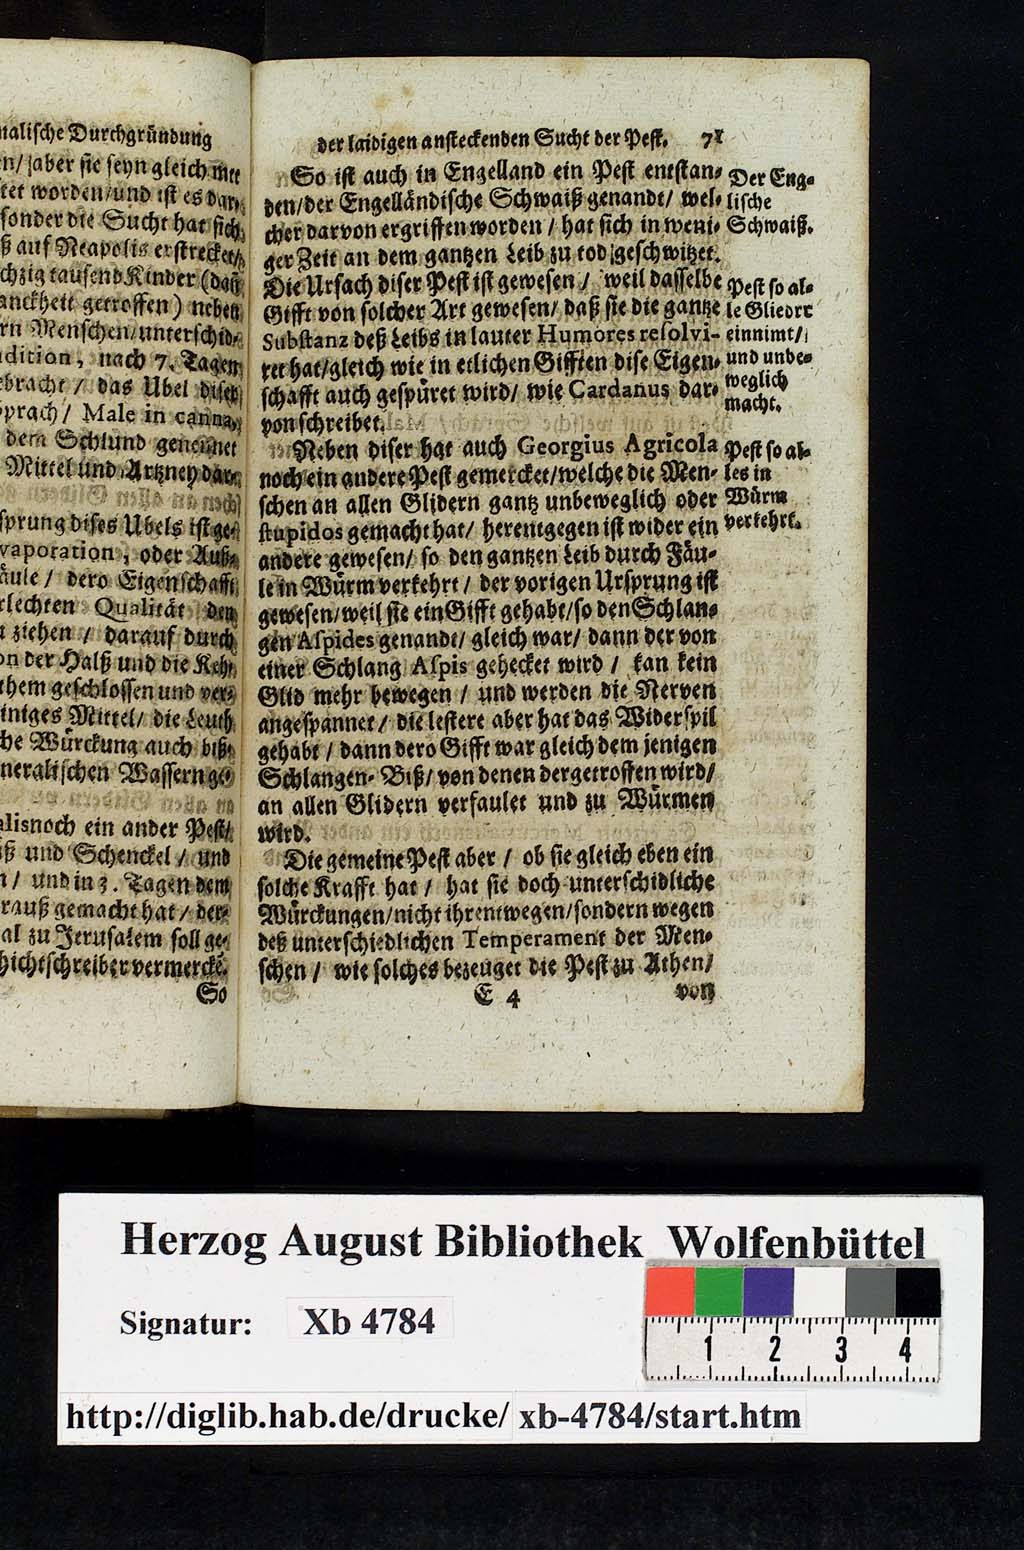 nalische Durchgründung
n/ jaber sie seyn gleich mit
tet worden/ und ist es dar-
sonder die Sucht hat sich
ß auf Neapolis erstrecket/
chzig tausend Kinder (dañ
anckheit getroffen) neben
rn Menschen/ unterschid-
dition, nach 7. Tagen
ebracht / das Ubel diser
prach/ Male in canna,
dem Schlund geneñnet
Mittel und Artzney dar-
sprung dises Ubels ist ge-
vaporation, oder Auß-
äule / dero Eigenschafft
rlechten Qualität den
n ziehen / darauf durch
on der Halß und die Keh-
them geschlossen und ver-
iniges Mittel/ die Leuth
he Würckung auch biß-
neralischen Wassern ge-
alisnoch ein ander Pest/
iß und Schenckel / und
n/ und in 3. Tagen dem
rauß gemacht hat / der-
al zu Jerusalem soll ge-
hichtschreiber vermercke.
So
der laidigen ansteckenden Sucht der Pest. 71
So ist auch in Engelland ein Pest entstan-
den/ der Engelländische Schwaiß genandt/ wel-
cher darvon ergriffen worden / hat sich in weni-
ger Zeit an dem gantzen Leib zu tod geschwitzet.
Die Ursach diser Pest ist gewesen / weil dasselbe
Gifft von solcher Art gewesen/ daß sie die gantze
Substanz deß Leibs in lauter Humores resolvi-
ret hat/ gleich wie in etlichen Gifften dise Eigen-
schafft auch gespüret wird/ wie Cardanus dar-
von schreibet.
Neben diser hat auch Georgius Agricola
noch ein andere Pest gemercket/ welche die Men-
schen an allen Glidern gantz unbeweglich oder
stupidos gemacht hat/ herentgegen ist wider ein
andere gewesen/ so den gantzen Leib durch Fäu-
le in Würm verkehrt / der vorigen Ursprung ist
gewesen/ weil sie ein Gifft gehabt/ so den Schlan-
gen Aspides genandt/ gleich war/ dann der von
einer Schlang Aspis gehecket wird / kan kein
Glid mehr bewegen / und werden die Nerven
angespannet / die lestere aber hat das Widerspil
gehabt / dann dero Gifft war gleich dem jenigen
Schlangen-Biß/ von denen der getroffen wird/
an allen Glidern verfaulet und zu Würmen
wird.
Die gemeine Pest aber / ob sie gleich eben ein
solche Krafft hat / hat sie doch unterschidliche
Würckungen/ nicht ihrentwegen/ sondern wegen
deß unterschiedlichen Temperament der Men-
schen / wie solches bezeuget die Pest zu Athen/
E 4 von
Der Eng-
lische
Schwaiß.
Pest so al-
le Glieder
einnimt/
und unbe-
weglich
macht.
Pest so al-
les in
Würm
verkehrt.
Herzog August Bibliothek Wolfenbüttel
Signatur: Xb 4784
1 2 3 4
http://diglib.hab.de/drucke/ xb-4784/start.htm